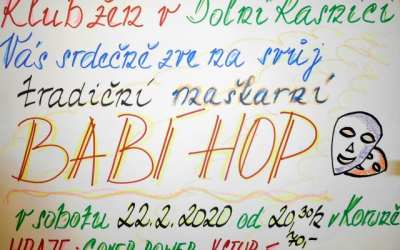 Klub žen v Dolní Kasnici
Vás srdečně zve na svůj
tradiční maškarní
BABÍ HOP
v sobotu 22.2.2020 od 20,30h v Koruně
HRAJE: COVER POWER VSTUP - 70,-